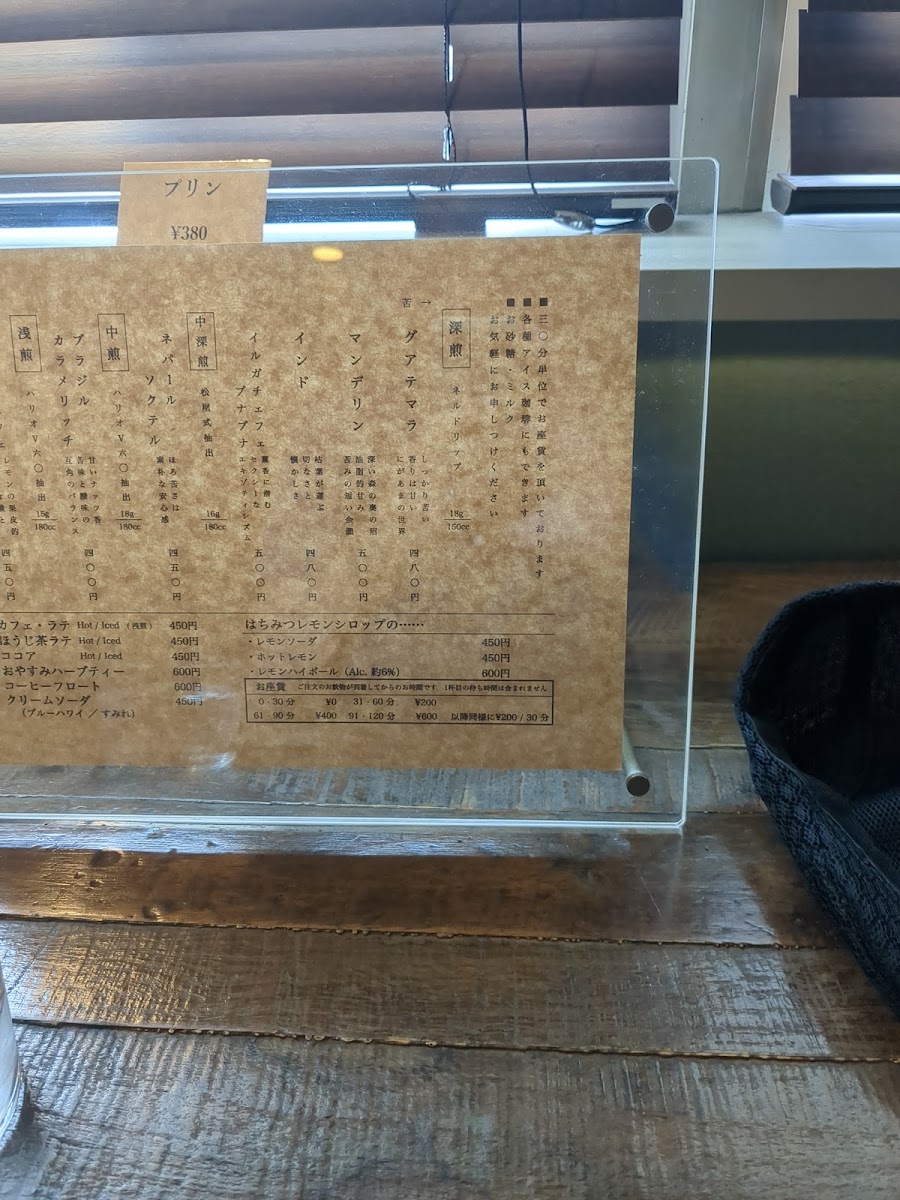 プリン
¥380
■三〇分単位でお座賃を頂いております
■各種アイス珈琲にもできます
■お砂糖・ミルク
お気軽にお申しつけください
苦 →
深煎
ネルドリップ
18g
150cc
グアテマラ
しっかり苦い
香りは甘い
にがあまの世界
四八〇円
マンデリン
深い森の奥の沼
油脂的甘み
苦みの強い余韻
五〇〇円
インド
枯葉が運ぶ
切なさと
懐かしさ
四八〇円
イルガチェフェ
ブナブナ
薫香に潜む
セクシーな
エキゾティシズム
五〇〇円
中深煎
松屋式抽出
16g
180cc
ネパール
ソクテル
ほろ苦さは
素朴な安心感
四五〇円
中煎
ハリオV六〇抽出
18g
180cc
ブラジル
カラメリッチ
甘いナッツ香
苦味と酸味の
互角のバランス
四〇〇円
浅煎
ハリオV六〇抽出
15g
180cc
四五〇円
カフェ・ラテ Hot / Iced (浅煎) 450円
ほうじ茶ラテ Hot / Iced 450円
ココア Hot / Iced 450円
おやすみハーブティー 600円
コーヒーフロート 600円
クリームソーダ 450円
(ブルーハワイ / すみれ)
はちみつレモンシロップの……
・レモンソーダ 450円
・ホットレモン 450円
・レモンハイボール (Alc. 約6%) 600円
お座賃 ご注文のお飲物が到着してからのお時間です 1杯目の待ち時間は含まれません
0 - 30 分 ¥0 31 - 60 分 ¥200
61 - 90 分 ¥400 91 - 120 分 ¥600 以降同様に¥200 / 30 分